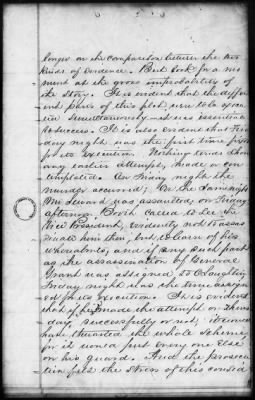 longer on the comparison between the two
kinds of evidence. But look for a mo-
ment at the gross improbability of
the story. It is evident that the differ-
ent parts of this plot were to be execu-
ted simultaneously and as essential
to success. It is also evident that Fri-
day night was the first time fixed
for its execution. Nothing shows that
any earlier attempt, made or con-
templated. On Friday night the
murder occurred; On the same night
Mr Seward was assaulted; on Friday
afternoon, Booth called to see the
Vice President, evidently not to assas-
sinate him then, but to learn of his
whereabouts, and if any such part
as the assassination of General
Grant was assigned to O'Laughlin
Friday night was the time assign-
ed for its execution. It is evident
that if he had made the attempt on Thurs-
day, successfully or not, it would
have thwarted the whole scheme,
for it would put every one else
on his guard. And the prosecu-
tion felt the stress of this consid